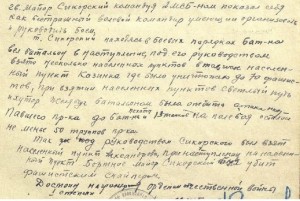 гв. Майор Сикорский командуя 2 МСБ-ном показал себя
как отличный боевой командир умелый организатор
и руководитель боя.
т. Сикорский находясь в боевых порядках бат-на
вел батальон в наступление, под его руководством
взято несколько населенных пунктов в т.ч. населен-
ный пункт Казинка где было уничтожено до 70 фашис-
тов, при взятии населенных пунктов Светлый путь
хутор батальоном была отбита
пр-ка до на поле боя
не менее 50 трупов пр-ка.
Так же под руководством Сикорского был взят
населенный пункт Александровка, При наступлении на населен-
ный пункт Майор Сикорский убит
фашистским снайпером.
Достоин награждения орденом отечественной войны
степени